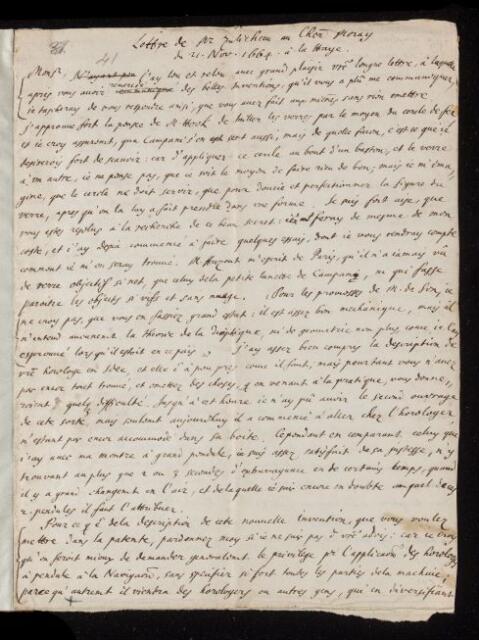 Lettre de Mr Zulichem au Chev. Moray
du 21. Nov. 1664. à la Haye.
41
Monsr. j'ay leu et releu avec grand plaisir vre longue lettre, à laquelle
après vous avoir remercié des belles Inventions, qu'il vous a plu me communiquer,
ie tascheray de vous respondre ainsi, que vous avez fait aux miennes sans rien omettre
J'approuve fort la pensée de M. Hook de tailler les verres par le moyen du cercle de fer
et ie croy asseurément, que Campani s'en est servi aussi, mais de quelle façon, c'est ce que ie
desirerois fort de scavoir: car d'appliquer ce cercle au bout d'un baston, et le verre
à un autre, ie ne pense pas, que ce soit le moyen de faire rien de bon; mais ie m'ima-
gine, que le cercle ne doit servir, que pour doucir et perfectionner la figure du
verre, après qu'on la luy a fait prendre dans une forme. Je suis fort aise, que
vous estes resolus à la recherche de ce beau secret: j'en feray de mesme de mon
costé, et i'ay desja commencé à faire quelques essais, dont ie vous rendray compte
comment ie m'en seray trouvé. M. Auzout m'escrit de Paris, qu'il n'a iamais vû
de verre objectif si net, que celuy de la petite lunette de Campani, ni qui fasse
paroitre les objets si vifs et sans nuage. Pour les promesses de M. de Son, ie
ne croy pas, que vous en fassiez grand estat: il est assez bon mechanique, mais il
n'entend aucunement la theorie de la Dioptrique, ni de geometrie non plus, comme ie l'ay
esprouvé lors qu'il estoit en ce païs. J'ay assez bien compris la description de
vre horologe en idée, et elle à peu près comme il faut, mais pourtant vous n'avez
pas encor tout trouvé, et en venant à la pratique, vous
quelq difficulté. Jusqu'à cet heure ie n'ay pû avoir le second ouvrage
de cete sorte, mais seulement aujourdhuy il a commencé à aller chez l'horologer,
n'estant pas encor accommodé dans sa boite. Cependant en comparant celuy que
j'ay avec ma montre à grand pendule, ie suis assez satisfait de sa justesse, n'y
trouvant au plus que 2 ou 3 secondes d'extravagance en de certains temps, quand
il y a grand changement en l'air, et de laquelle ie suis encore en doubte auquel de ces
2 pendules il faut l'attribuer.
Pour ce q̃ ẽ de la description de cete nouvelle invention, que vous voulez
mettre dans la patente, pardonnez moy si ie ne suis pas d vre advis: car ie croy
qu'on feroit mieux de demander generalement le privilege pr l'applicaõn des horologes
à pendule à la Navigaõn, sans specifier si fort toutes les parties de la machine,
parce qu'autrement il viendra des horologers ou autres gens, qui en diversifiant